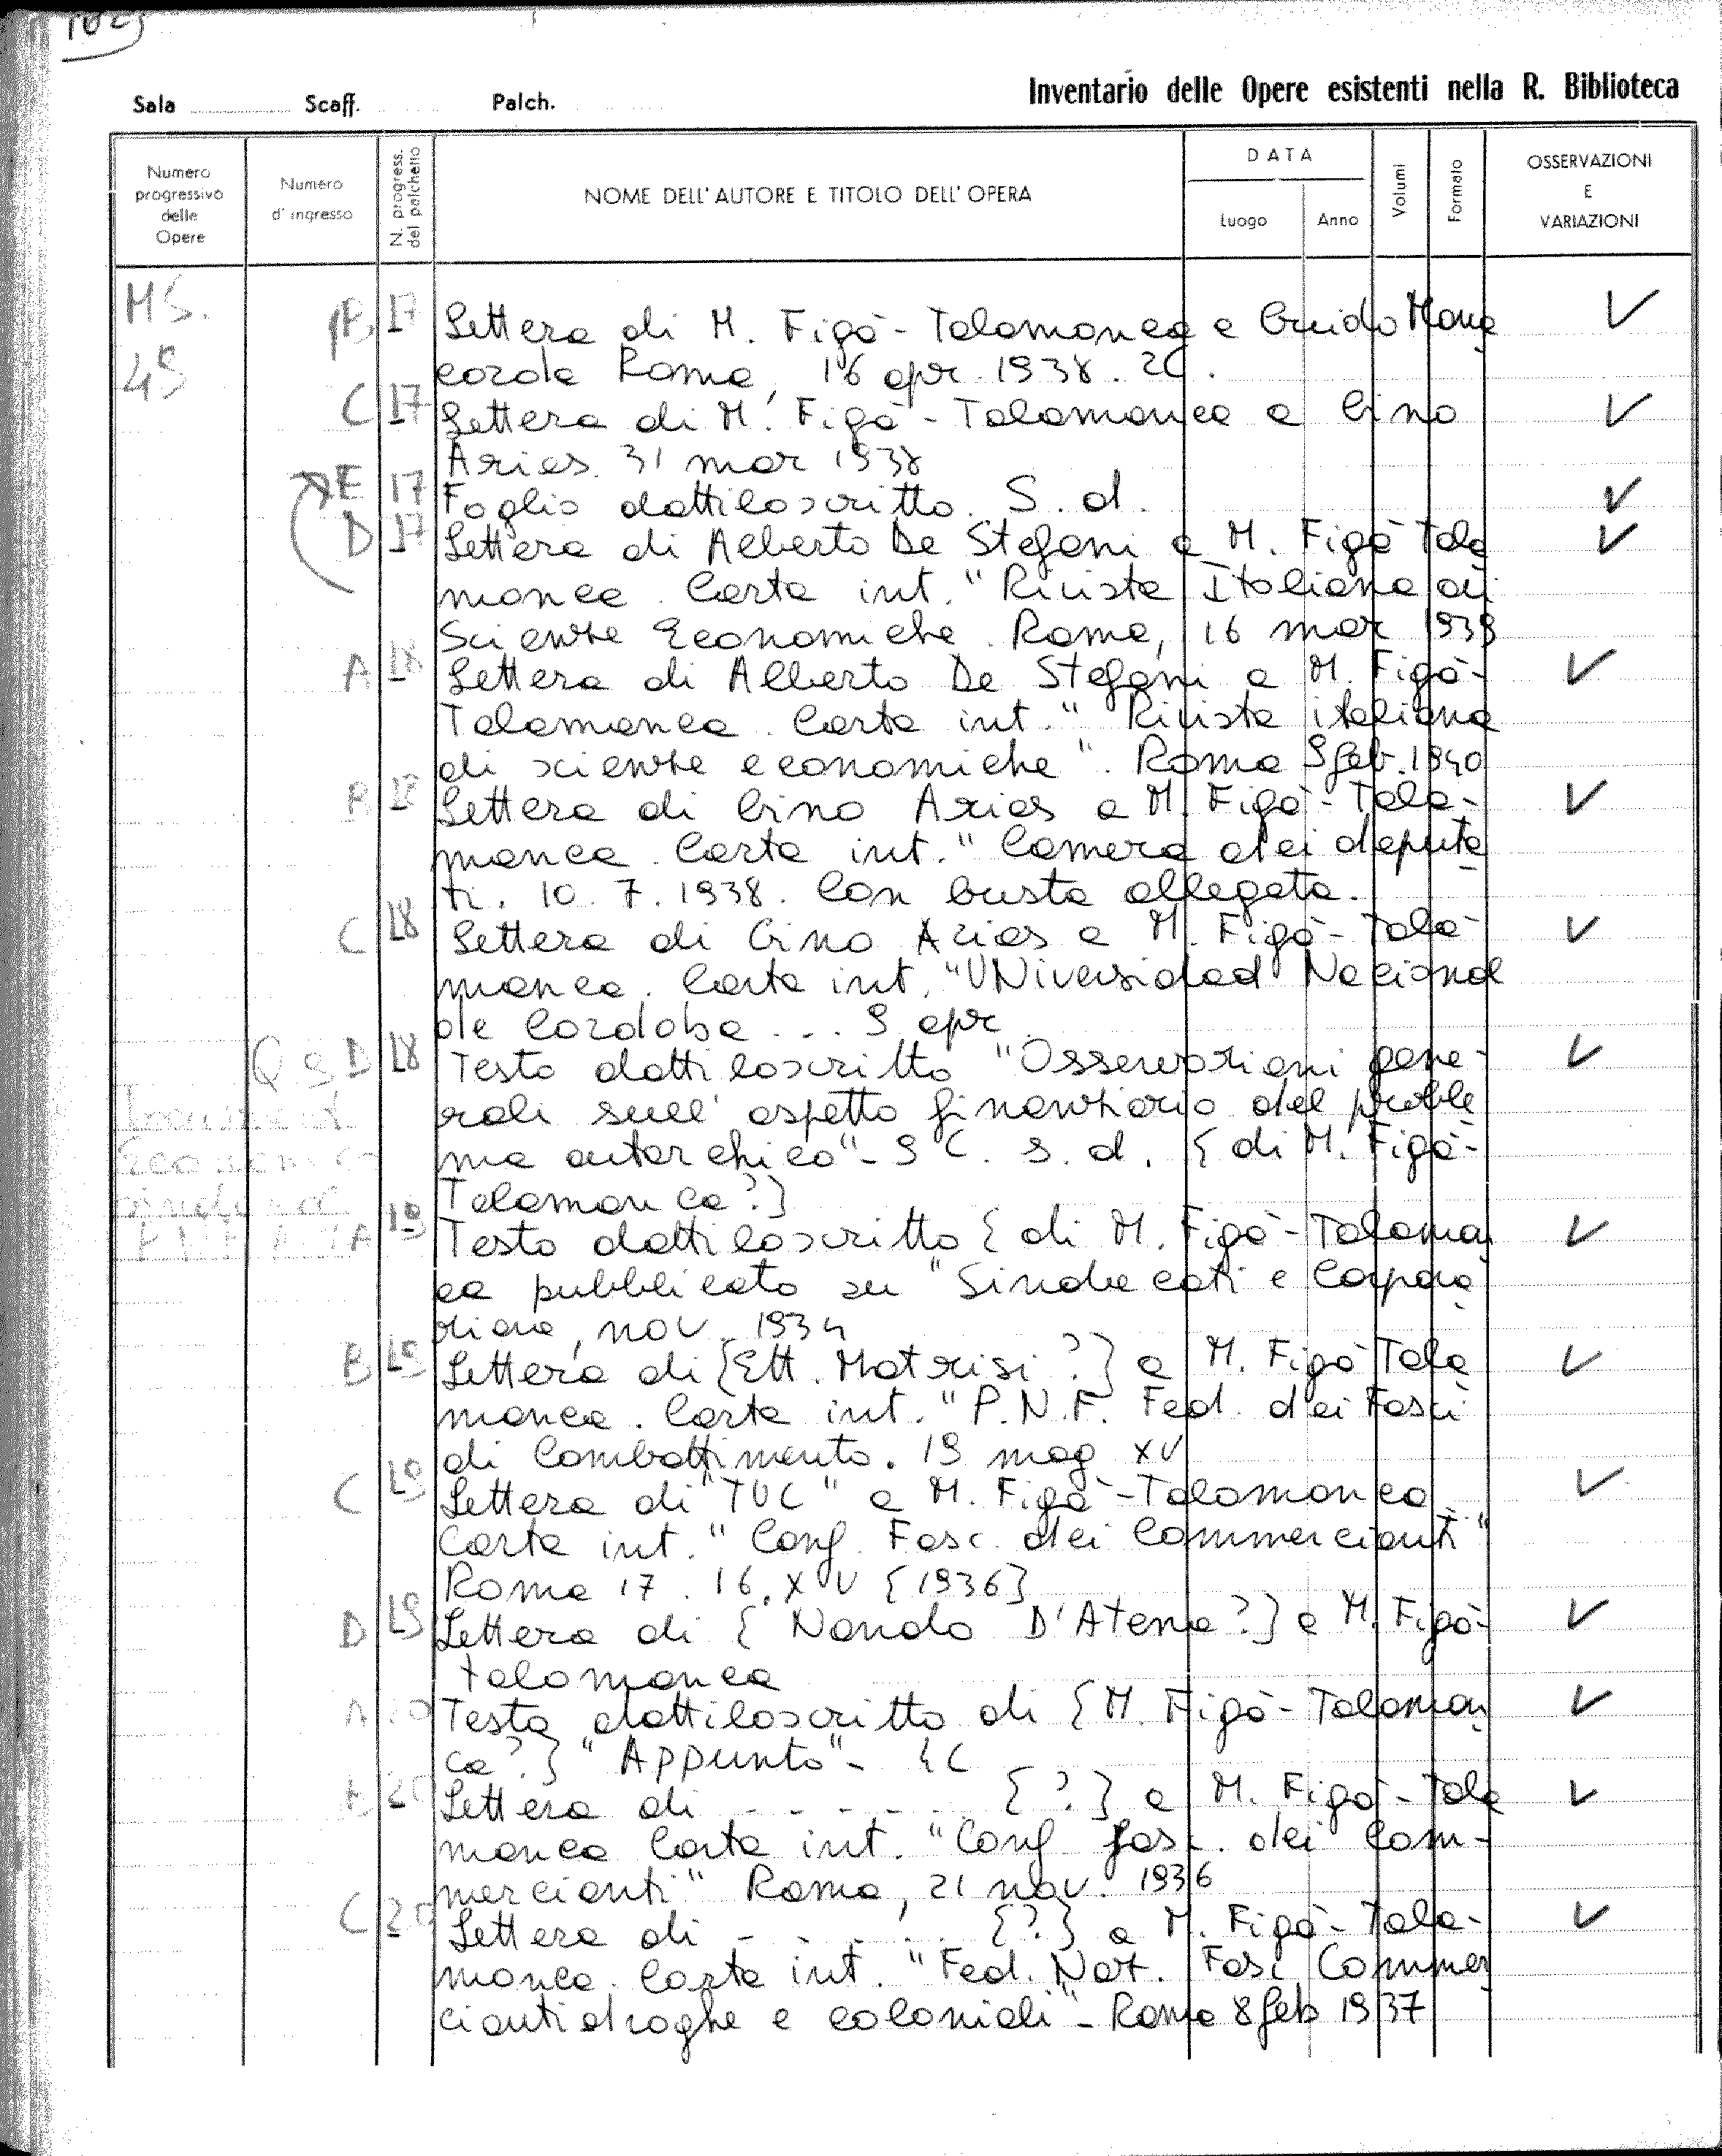 Sala Scaff. Palch. Inventario delle Opere esistenti nella R. Biblioteca
Numero progressivo delle Opere
Numero d'ingresso
N. progress. del palchetto
NOME DELL'AUTORE E TITOLO DELL'OPERA
DATA
Luogo
Anno
Volumi
Formato
OSSERVAZIONI E VARIAZIONI
MS. B 17 Lettera di M. Figà-Talamonca a Guido Mana ✓
49 corda Roma, 16 apr. 1938. 2C.
C 17 Lettera di M. Figà-Talamonca a Gino ✓
Arias. 31 mar 1938
E 17 Foglio dattiloscritto. S. d. ✓
D 17 Lettera di Alberto De Stefani a M. Figà Tala ✓
monca. Carta int. "Rivista Italiana di
Scienze Economiche. Roma, 16 mar 1939
A 18 Lettera di Alberto De Stefani a M. Figà- ✓
Talamonca. Carta int. "Rivista italiana
di scienze economiche". Roma 9 feb. 1940
B 18 Lettera di Gino Arias a M. Figà-Tala- ✓
monca. Carta int. "Camera dei deputa
ti. 10.7.1938. Con busta allegata.
C 18 Lettera di Gino Arias a M. Figà-Tala- ✓
manca. Carta int. "UNiversidad Nacional
de Cordoba ... 9 apr.
D 18 Testo dattiloscritto "Osservazioni gene- ✓
rali sull'aspetto finanziario del proble
ma autarchico"- 9 C. s. d. [di M. Figà-
Talamanca?]
A 19 Testo dattiloscritto [di M. Figà-Talaman ✓
ca pubblicato su "Sindacati e Corpora
zione, nov. 1934
B 19 Lettera di [Ett. Matrisi?] a M. Figà Tala ✓
manca. Carta int. "P.N.F. Fed. dei Fasci
di Combattimento. 19 mag XV
C 19 Lettera di "TUC" a M. Figà-Talamanca. ✓
Carta int. "Conf. Fasc. dei Commercianti"
Roma 17. 16. XV [1936]
D 19 Lettera di [Nando D'Atena?] a M. Figà- ✓
talamanca
A 20 Testo dattiloscritto di [M. Figà-Talaman ✓
ca?] "Appunto"-
B 20 Lettera di ------ [?] a M. Figà-Tala ✓
manca Carta int. "Conf fasc. dei Com-
mercianti" Roma, 21 nov. 1936
C 20 Lettera di ------ [?] a M. Figà-Tala- ✓
manca. Carta int. "Fed. Naz. Fasc. Commer
cianti droghe e coloniali"- Roma 8 feb 1937